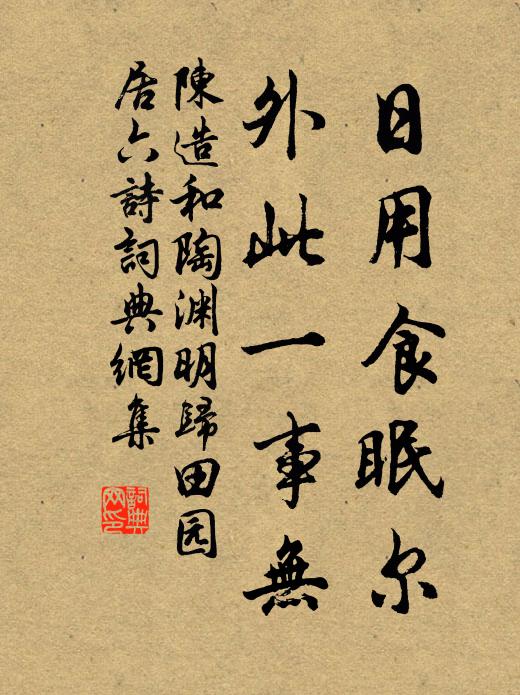 日用食眠尔
外此一事無
陳造和陶渊明歸田园
居六詩詞典網集
詞典
网印